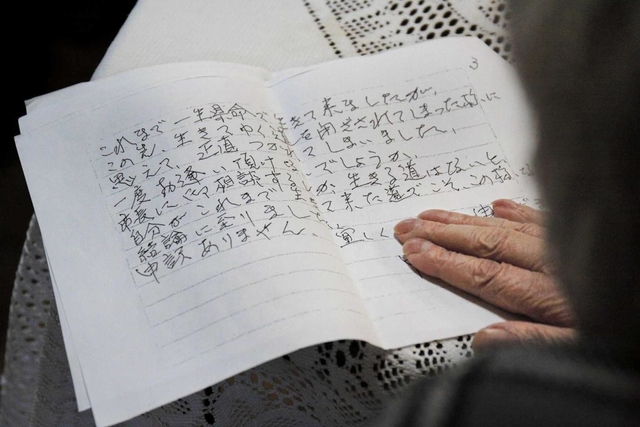 3
これまで一生懸命で生きて来ましたが、
この先、生きてゆく道を閉ざされてしまった様に
思えて、正直つかれてしまいました。
一度 頂け でしょうか
市長に 相談する か、生きる道はないと
自分がこれまで生きて来た道でこそ、この様な
結論に至りまし 申
申訳ありません。宜しく